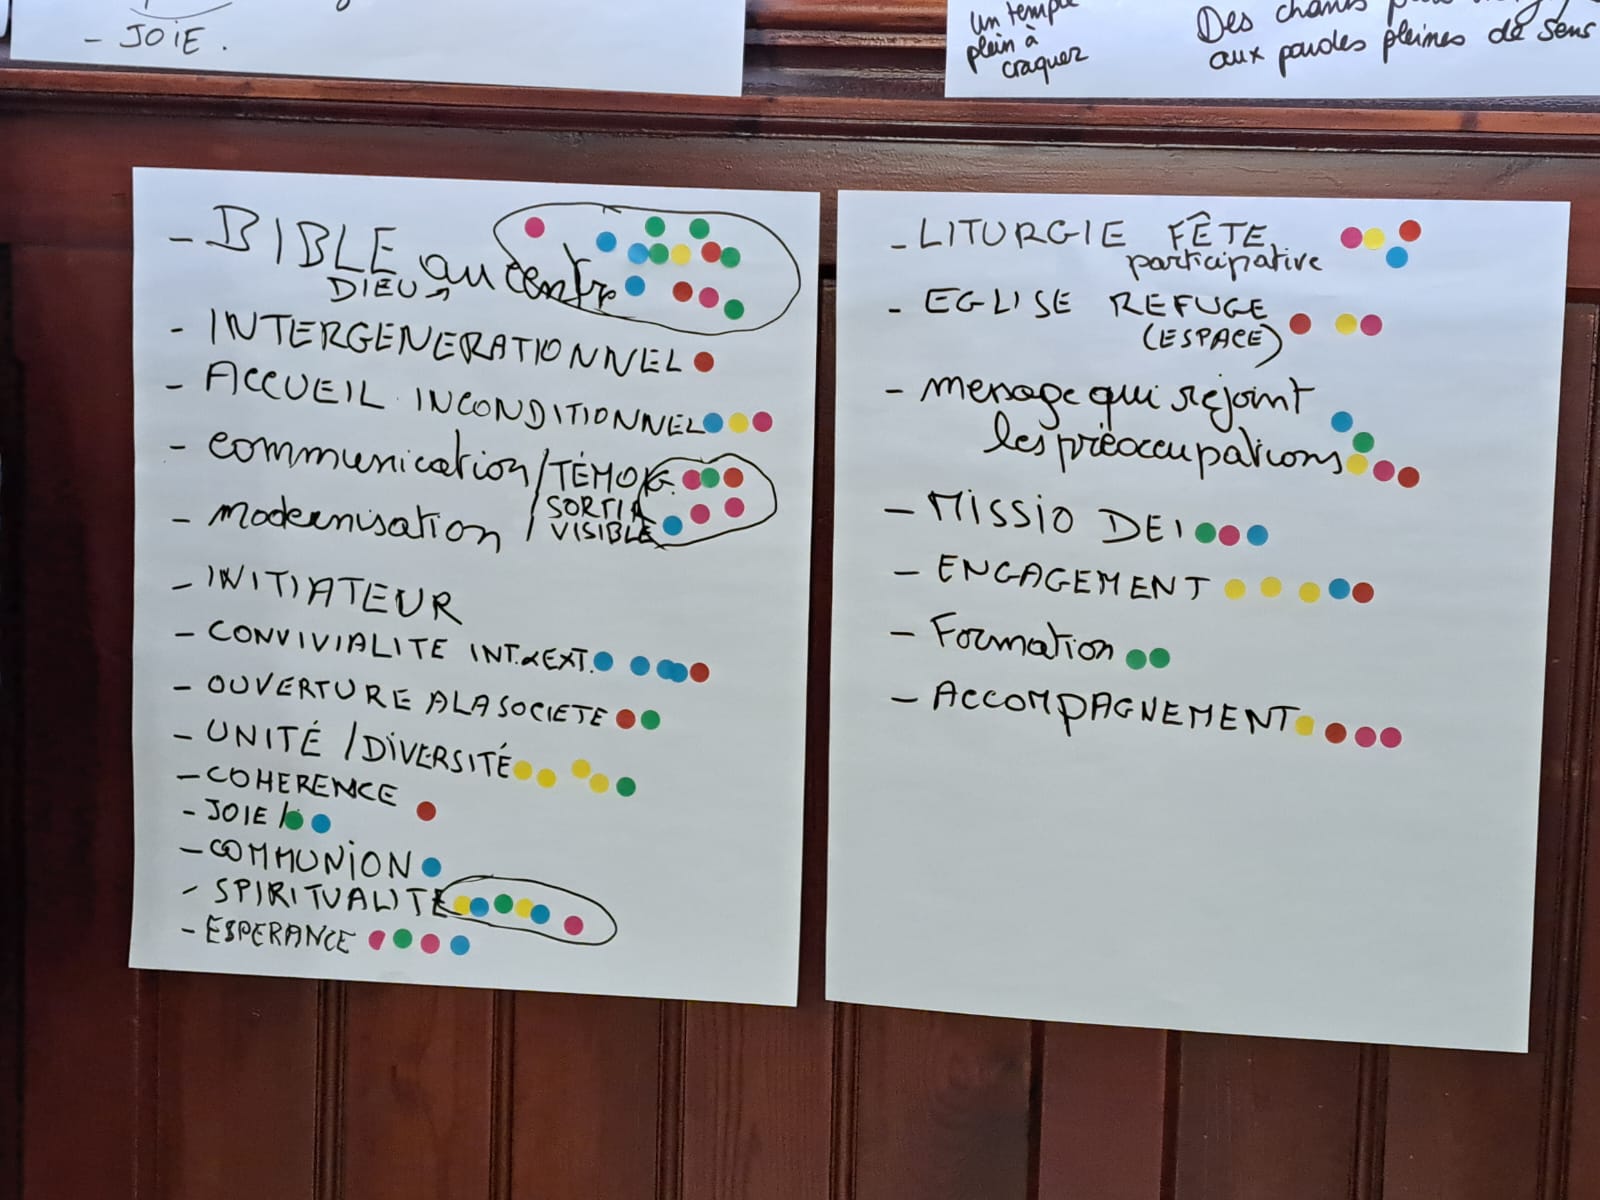 - JOIE.
un temple
plein à
craquer
Des chants
aux paroles pleines de sens
- BIBLE au centre
DIEU
- INTERGENERATIONNEL
- ACCUEIL INCONDITIONNEL
- communication / TÉMOIG.
/ SORTIR
- modernisation / VISIBLE
- INITIATEUR
- CONVIVIALITE INT. & EXT.
- OUVERTURE A LA SOCIETE
- UNITÉ / DIVERSITÉ
- COHERENCE
- JOIE /
- COMMUNION
- SPIRITUALITE
- ESPERANCE
- LITURGIE FÊTE
participative
- EGLISE REFUGE
(ESPACE)
- message qui rejoint
les préoccupations
- MISSIO DEI
- ENGAGEMENT
- Formation
- ACCOMPAGNEMENT